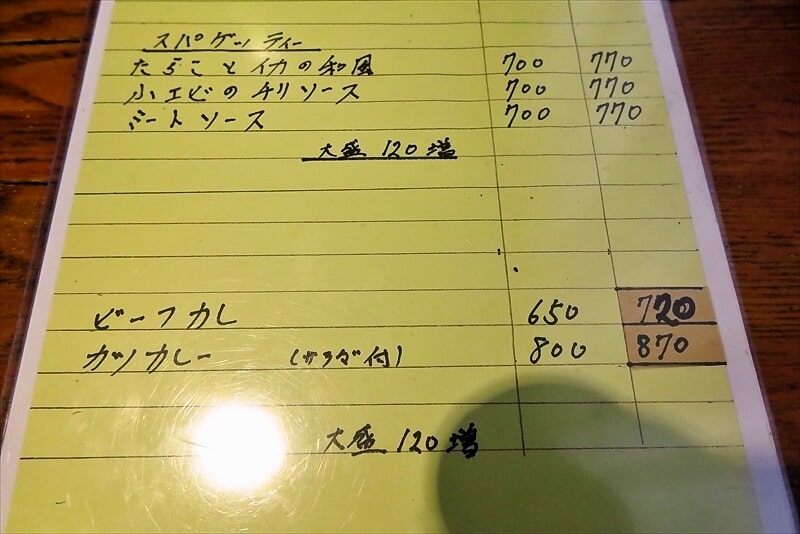 スパゲッティー
たらことイカの和風 700 770
小エビのチリソース 700 770
ミートソース 700 770
大盛 120増
ビーフカレー 650 720
カツカレー (サラダ付) 800 870
大盛 120増